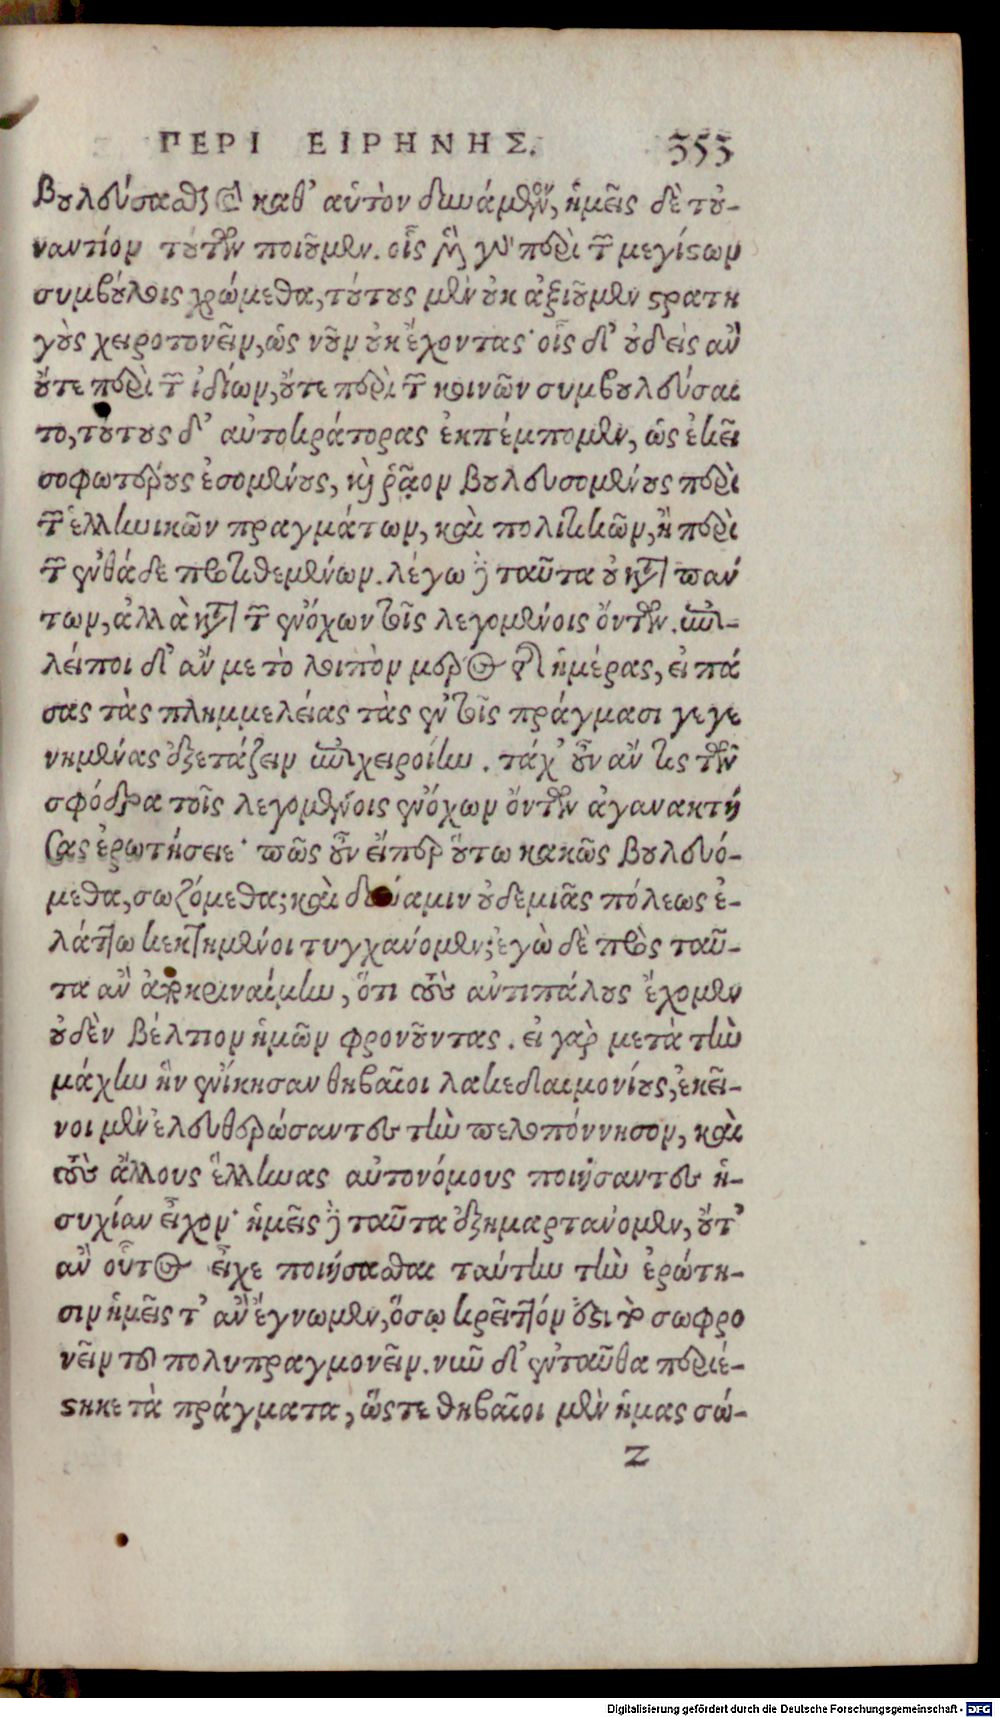 ΠΕΡΙ ΕΙΡΗΝΗΣ. 353
βουλεύσασθαι καθ' αὑτὸν δυνάμενον, ἡμεῖς δὲ τοὐ-
ναντίον τούτων ποιοῦμεν. οἷς μὲν γὰρ περὶ τῶν μεγίστων
συμβούλοις χρώμεθα, τούτους μὲν οὐκ ἀξιοῦμεν στρατη
γοὺς χειροτονεῖν, ὡς νοῦν οὐκ ἔχοντας· οἷς δ' οὐδεὶς ἂν
οὔτε περὶ τῶν ἰδίων, οὔτε περὶ τῶν κοινῶν συμβουλεύσαι
το, τούτους δ' αὐτοκράτορας ἐκπέμπομεν, ὡς ἐκεῖ
σοφωτέρους ἐσομένους, καὶ ῥᾷον βουλευσομένους περὶ
τῶν ἑλληνικῶν πραγμάτων, καὶ πολιτικῶν, ἢ περὶ
τῶν ἐνθάδε προτιθεμένων. λέγω δὲ ταῦτα οὐ κατὰ πάν
των, ἀλλὰ κατὰ τῶν ἐνόχων τοῖς λεγομένοις ὄντων. ἐπι-
λείποι δ' ἄν με τὸ λοιπὸν μέρος τῆς ἡμέρας, εἰ πά
σας τὰς πλημμελείας τὰς ἐν τοῖς πράγμασι γεγε
νημένας ἐξετάζειν ἐπιχειροίην. τάχ' οὖν ἄν τις τῶν
σφόδρα τοῖς λεγομένοις ἐνόχων ὄντων ἀγανακτή
σας ἐρωτήσειε· πῶς οὖν εἴπερ οὕτω κακῶς βουλευό-
μεθα, σωζόμεθα; καὶ δύναμιν οὐδεμιᾶς πόλεως ἐ-
λάττω κεκτημένοι τυγχάνομεν; ἐγὼ δὲ πρὸς ταῦ-
τα ἂν ἀποκριναίμην, ὅτι τοὺς ἀντιπάλους ἔχομεν
οὐδὲν βέλτιον ἡμῶν φρονοῦντας. εἰ γὰρ μετὰ τὴν
μάχην ἣν ἐνίκησαν θηβαῖοι λακεδαιμονίους, ἐκεῖ-
νοι μὲν ἐλευθερώσαντες τὴν πελοπόννησον, καὶ
τοὺς ἄλλους ἕλληνας αὐτονόμους ποιήσαντες ἡ-
συχίαν εἶχον· ἡμεῖς δὲ ταῦτα ἐξημαρτάνομεν, οὔτ'
ἂν οὗτος εἶχε ποιήσασθαι ταύτην τὴν ἐρώτη-
σιν ἡμεῖς τ' ἂν ἔγνωμεν, ὅσῳ κρεῖττόν ἐστι τὸ σωφρο
νεῖν τοῦ πολυπραγμονεῖν. νῦν δ' ἐνταῦθα περιέ-
στηκε τὰ πράγματα, ὥστε θηβαῖοι μὲν ἡμας σώ-
Z
Digitalisierung gefördert durch die Deutsche Forschungsgemeinschaft - DFG